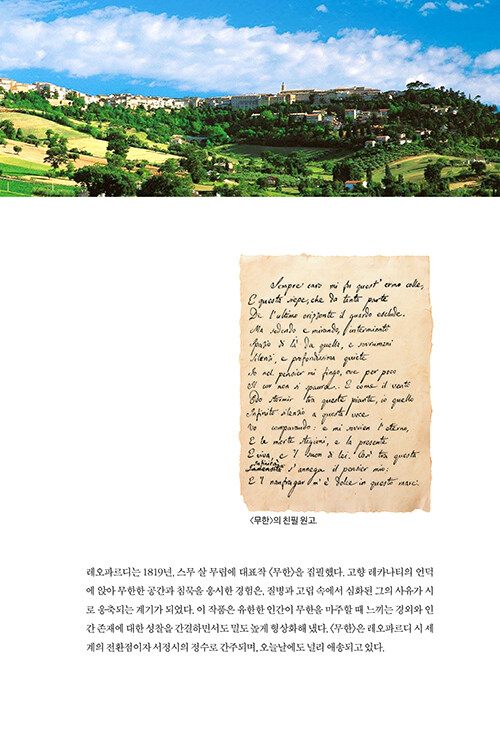 Sempre caro mi fu quest' ermo colle,
E questa siepe, che da tanta parte
De l'ultimo orizzonte il guardo esclude.
Ma sedendo e mirando, interminato
Spazio di là da quella, e sovrumani
Silenzi, e profondissima quiete
Io nel pensier mi fingo, ove per poco
Il cor non si spaura. E come il vento
Odo stormir tra queste piante, io quello
Infinito silenzio a questa voce
Vo comparando: e mi sovvien l'eterno,
E le morte stagioni, e la presente
E viva, e 'l suon di lei. Così tra questa
s'annega il pensier mio;
E 'l naufragar m'è dolce in questo mare.
〈무한〉의 친필 원고.
레오파르디는 1819년, 스무 살 무렵에 대표작 〈무한〉을 집필했다. 고향 레카나티의 언덕
에 앉아 무한한 공간과 침묵을 응시한 경험은, 질병과 고립 속에서 심화된 그의 사유가 시
로 응축되는 계기가 되었다. 이 작품은 유한한 인간이 무한을 마주할 때 느끼는 경외와 인
간 존재에 대한 성찰을 간결하면서도 밀도 높게 형상화해 냈다. 〈무한〉은 레오파르디 시 세
계의 전환점이자 서정시의 정수로 간주되며, 오늘날에도 널리 애송되고 있다.